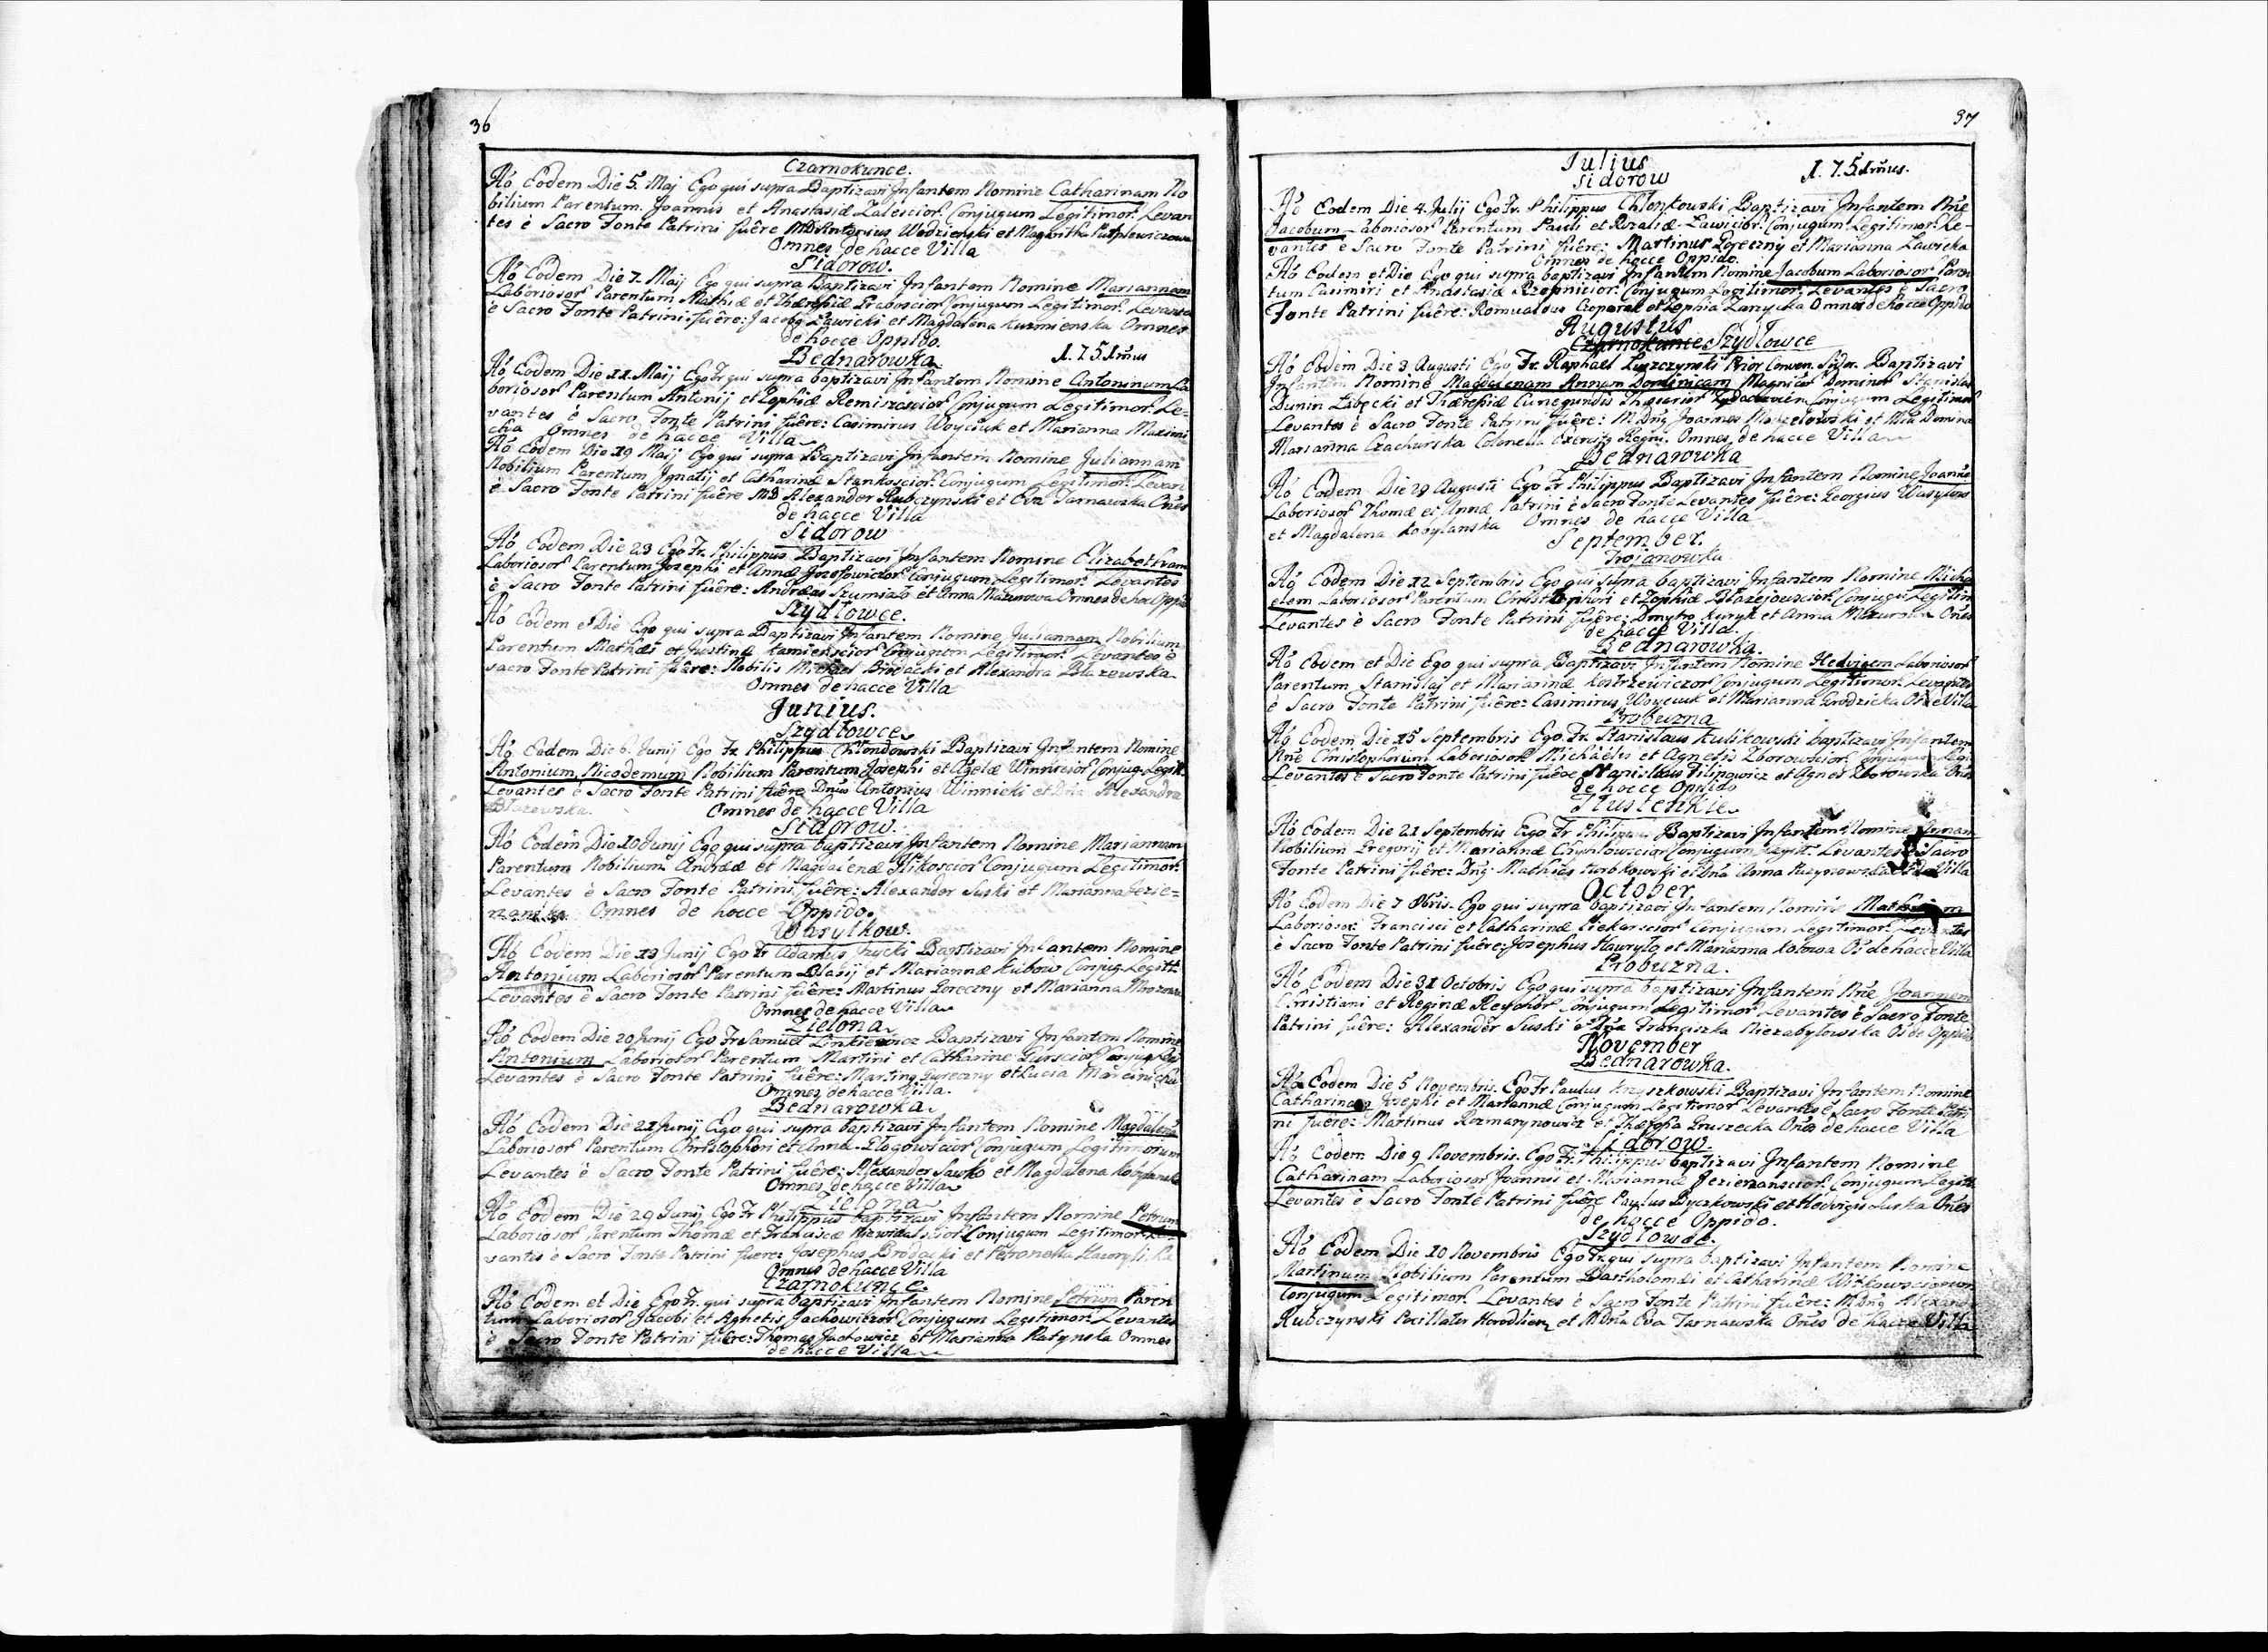 36
Czarnokunce.
Aó Eodem Die 5. Maj Ego qui supra Baptizavi Infantem Nomine Catharinam No
bilium Parentum. Joannis et Anastasiæ Zalescior. Conjugum Legitimor. Levan
tes è Sacro Fonte Patrini fuêre MD Antonius Wodzienski et Magaritha
Omnes de hacce Villa
Sidorow.
Aó Eodem Die 7. Maij Ego qui supra Baptizavi Infantem Nomine Mariannam
Laboriosor Parentum Mathiæ et Theresiæ Graboscior Conjugum Legitimor. Levantes
è Sacro Fonte Patrini fuêre: Jacobg Ławicki et Magdalena Kuzmienska Omnes
de hocce Oppido.
Bednarowka 1.7.5.1mus
Aó Eodem Die 11. Maij Ego Fr qui supra baptizavi Infantem Nomine Antoninum La
boriosor Parentum Antonij et Zophiæ Remiszescior Conjugum Legitimor. Le-
vantes è Sacro Fonte Patrini fuêre: Casimirus Woyciuk et Marianna Maximi
cha Omnes de hacce Villa
Aó Eodem Die 19 Maij Ego qui supra Baptizavi Infantem Nomine Juliannam
Nobilium Parentum Ignatij et Catharinæ Stankoscior. Conjugum Legitimor. Levan
è Sacro Fonte Patrini fuêre MD Alexander Rubczynski et Eva Tarnawska Onês
de hacce Villa
Sidorow
Aó Eodem Die 23 Ego Fr. Philippus Baptizavi Infantem Nomine Elizabetham
Laboriosor Parentum Josephi et Annæ Jozefowiczor Conjugum Legitimor. Levantes
è Sacro Fonte Patrini fuêre: Andreas Szumiało et Anna Mazurowa Omnes de hoc Oppid
Szydłowce.
Aó Eodem et Die Ego qui supra Baptizavi Infantem Nomine Juliannam Nobilium
Parentum Mathæi et Justinæ Kamienscior Conjugum Legitimor. Levantes è
sacro Fonte Patrini fuêre: Nobilis Michael Brodacki et Alexandra Błazewska
Omnes de hacce Villa
Junius.
Szydłowce
Aó Eodem Die 6. Junij Ego Fr. Philippus Chłondowski Baptizavi Infantem Nomine
Antonium Nicodemum Nobilium Parentum Josephi et Agatæ Winniscior Conjug. Legit.
Levantes è Sacro Fonte Patrini fuêre Dnus Antonius Winnicki et Dna Alexandra
Błazewska. Omnes de hacce Villa
Sidorow.
Aó Eodem Die 10 Junij Ego qui supra baptizavi Infantem Nomine Mariannam
Parentum Nobilium Andreæ et Magdalenæ Conjugum Legitimor.
Levantes è Sacro Fonte Patrini fuêre: Alexander Suski et Marianna Jezie=
Omnes de hocce Oppido.
Wasylkow.
Aó Eodem Die 13 Junij Ego Fr Adamus Baptizavi Infantem Nomine
Antonium Laboriosor Parentum Blasij et Mariannæ Kubow Conjug. Legitt.
Levantes è Sacro Fonte Patrini fuêre: Martinus Goreczny et Marianna
Omnes de hacce Villa
Zielona
Aó Eodem Die 20 Junij Ego Fr Samuel Linkiewicz Baptizavi Infantem Nomine
Antonium Laboriosor Parentum Martini et Catharine Conjug
Levantes è Sacro Fonte Patrini fuêre: Marting Gureczny et Lucia
Omnes de hacce Villa.
Bednarowka
Aó Eodem Die 21 Junij Ego qui supra baptizavi Infantem Nomine Magdalenam
Laboriosor Parentum Christophori et Annæ Conjugum Legitimorum
Levantes è Sacro Fonte Patrini fuêre: Alexander Sawko et Magdalena Kobylanska
Omnes de hacce Villa
Zielona
Aó Eodem Die 29 Junij Ego Fr Philippus baptizavi Infantem Nomine Petrum
Laboriosor Parentum Thomæ et Franciscæ Conjugum Legitimor. Le-
vantes è Sacro Fonte Patrini fuere: Josephus Brodacki et Petronella
Omnes de hacce Villa
Czarnokunce.
Aó Eodem et Die Ego Fr. qui supra baptizavi Infantem Nomine Petrum Paren
tum Laboriosor Jacobi et Agnetis Jachowiczor Conjugum Legitimor Levantes
è Sacro Fonte Patrini fuêre: Thomas Jachowicz et Marianna Ratynska Omnes
de hacce Villa
37
Julius 1.7.5.1mus.
Sidorow
Aó Eodem Die 4. Julij Ego Fr. Philippus Chłonkowski Baptizavi Infantem Nne
Jacobum Laboriosor Parentum Pauli et Rozaliæ Lawicior. Conjugum Legitimor. Le-
vantes è Sacro Fonte Patrini fuêre: Martinus Goreczny et Marianna Lawicka
Omnes de hocce Oppido.
Aó Eodem et Die Ego qui supra baptizavi Infantem Nomine Jacobum Laboriosor Paren
tum Casimiri et Anastasiæ Conjugum Legitimor. Levantes è Sacro
Fonte Patrini fuêre: Romualdus et Zophia Omnes de hocce Oppido
Augustus
Czarnokunce Szydłowce
Aó Eodem Die 3 Augusti Ego Fr. Raphael Luszczynski Prior Conven. Sidor. Baptizavi
Infantem Nomine Magdalenam Annam Dominicam Magnicor Dominor Stanislai
Dunin Łabęcki et Theresiæ Cunegundis Conjugum Legitimor
Levantes è Sacro Fonte Patrini fuêre: M Dng Joannes et Mca Domina
Marianna Czachurska Colonella Exercitg Regni. Omnes de hacce Villa
Bednarowka
Aó Eodem Die 29 Augusti Ego Fr Philippus Baptizavi Infantem Nomine
Laboriosor Thomæ et Annæ Patrini è Sacro Fonte Levantes fuêre: Georgius
et Magdalena Kobylanska Omnes de hacce Villa
September.
Trojanowka
Aó Eodem Die 12 Septembris Ego qui supra baptizavi Infantem Nomine Micha
elem Laboriosor Parentum Christophori et Zophiæ Błazejowscior. Conjugu Legitim
Levantes è Sacro Fonte Patrini fuêre: Dmytro Kuryk et Anna Mazurska Onês
de hacce Villa.
Bednarowka.
Aó Eodem et Die Ego qui supra Baptizavi Infantem Nomine Hedvigem Laboriosor
Parentum Stanislaj et Mariannæ Kostrzewiczor Conjugum Legitimor. Levantes
è Sacro Fonte Patrini fuêre: Casimirus Woyciuk et Marianna Grodzicka Villa
Probuzna
Aó Eodem Die 15 Septembris Ego Fr. Stanislaus Kulikowski baptizavi Infantem
Nne Christophorum Laboriosor Michaëlis et Agnetis Zborowscior. Conjugum Legi
Levantes è Sacro Fonte Patrini fuêre Stanislaus Filipowicz et Agnes Zborowska Onês
de hocce Oppido
Tłustenkie
Aó Eodem Die 21 Septembris Ego Fr Philippus Baptizavi Infantem Nomine Annam
Nobilium Gregorij et Mariannæ Conjugum Legitt. Levantes è Sacro
Fonte Patrini fuêre: Dng Mathias et Dna Anna Villa
October.
Aó Eodem Die 7 8bris. Ego qui supra baptizavi Infantem Nomine
Laboriosor. Francisci et Catharinæ Piekarscior Conjugum Legitimor. Levantes
è Sacro Fonte Patrini fuêre: Josephus Hawryło et Marianna Kotowa Os de hacce Villa
Probuzna.
Aó Eodem Die 31 Octobris Ego qui supra baptizavi Infantem Nne Joannem
Christiani et Reginæ Conjugum Legitimor Levantes è Sacro Fonte
Patrini fuêre: Alexander Suski et Dna Franciszka Niezabytowska Os de Oppido
November
Bednarowka.
Aó Eodem Die 5 Novembris. Ego Fr Paulus Baptizavi Infantem Nomine
Catharinam Josephi et Mariannæ Conjugum Legitimor Levantes è Sacro Fonte Patri
ni fuêre: Martinus Rozmarynowicz et Gruszecka Onês de hacce Villa
Sidorow.
Aó Eodem Die 9 Novembris. Ego Fr. Philippus baptizavi Infantem Nomine
Catharinam Laboriosor Joannis et Mariannæ Jezieranscior. Conjugum Legitt
Levantes è Sacro Fonte Patrini fuêre Paulus Byczkowski et Hedvigis Luska Onês
de hocce Oppido.
Szydłowce.
Aó Eodem Die 10 Novembris Ego Fr. qui supra baptizavi Infantem Nomine
Martinum Nobilium Parentum Bartholomæi et Catharinæ Witkowscionum
Conjugum Legitimor. Levantes è Sacro Fonte Patrini fuêre: M Dng Alexander
Rubczynski Pocillator et M Dna Eva Tarnawska Onês de hacce Villa